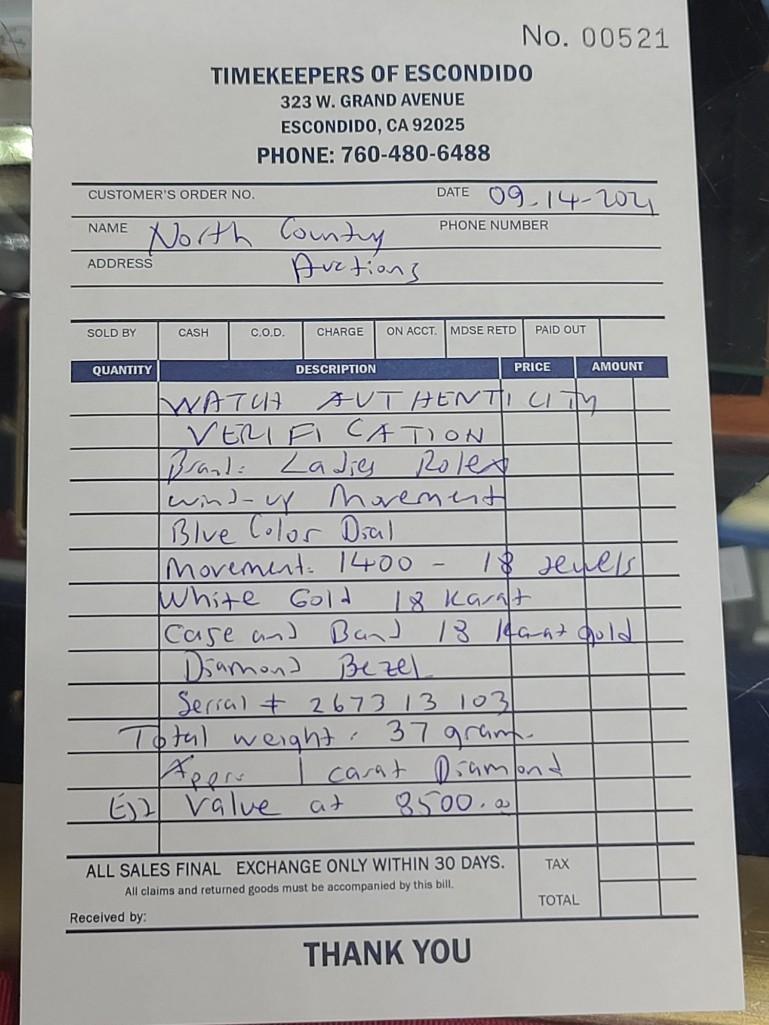 No. 00521
TIMEKEEPERS OF ESCONDIDO
323 W. GRAND AVENUE
ESCONDIDO, CA 92025
PHONE: 760-480-6488
CUSTOMER'S ORDER NO. DATE 09-14-2021
NAME North County PHONE NUMBER
ADDRESS Auctions
SOLD BY CASH C.O.D. CHARGE ON ACCT. MDSE RETD PAID OUT
QUANTITY DESCRIPTION PRICE AMOUNT
WATCH AUTHENTICITY
VERIFICATION
Brand: Ladies Rolex
wind-up Movement
Blue Color Dial
Movement: 1400 - 18 Jewels
White Gold 18 Karat
Case and Band 18 Karat gold
Diamond Bezel
Serial # 2673 13 103
Total weight: 37 gram.
Appro 1 carat Diamond
Est Value at 8500.00
ALL SALES FINAL EXCHANGE ONLY WITHIN 30 DAYS. TAX
All claims and returned goods must be accompanied by this bill.
TOTAL
Received by:
THANK YOU